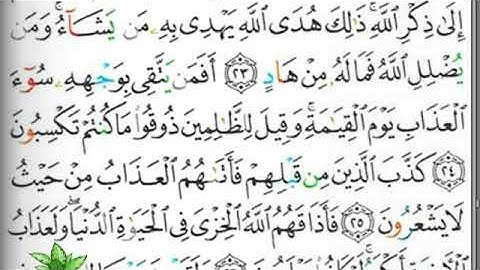 إِلَىٰ ذِكْرِ ٱللَّهِ ۚ ذَٰلِكَ هُدَى ٱللَّهِ يَهْدِى بِهِۦ مَن يَشَآءُ ۚ وَمَن
يُضْلِلِ ٱللَّهُ فَمَا لَهُۥ مِنْ هَادٍ ٢٣ أَفَمَن يَتَّقِى بِوَجْهِهِۦ سُوٓءَ
ٱلْعَذَابِ يَوْمَ ٱلْقِيَٰمَةِ ۚ وَقِيلَ لِلظَّٰلِمِينَ ذُوقُوا۟ مَا كُنتُمْ تَكْسِبُونَ
٢٤ كَذَّبَ ٱلَّذِينَ مِن قَبْلِهِمْ فَأَتَىٰهُمُ ٱلْعَذَابُ مِنْ حَيْثُ
لَا يَشْعُرُونَ ٢٥ فَأَذَاقَهُمُ ٱللَّهُ ٱلْخِزْىَ فِى ٱلْحَيَوٰةِ ٱلدُّنْيَا ۖ وَلَعَذَابُ